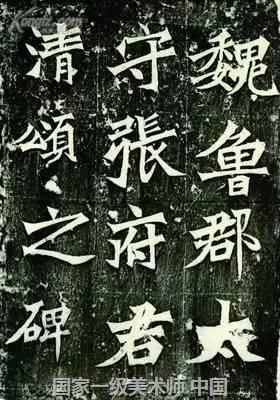 魏魯郡太
守張府君
清頌之碑
Kongfz.com
国家一级美术师.中国